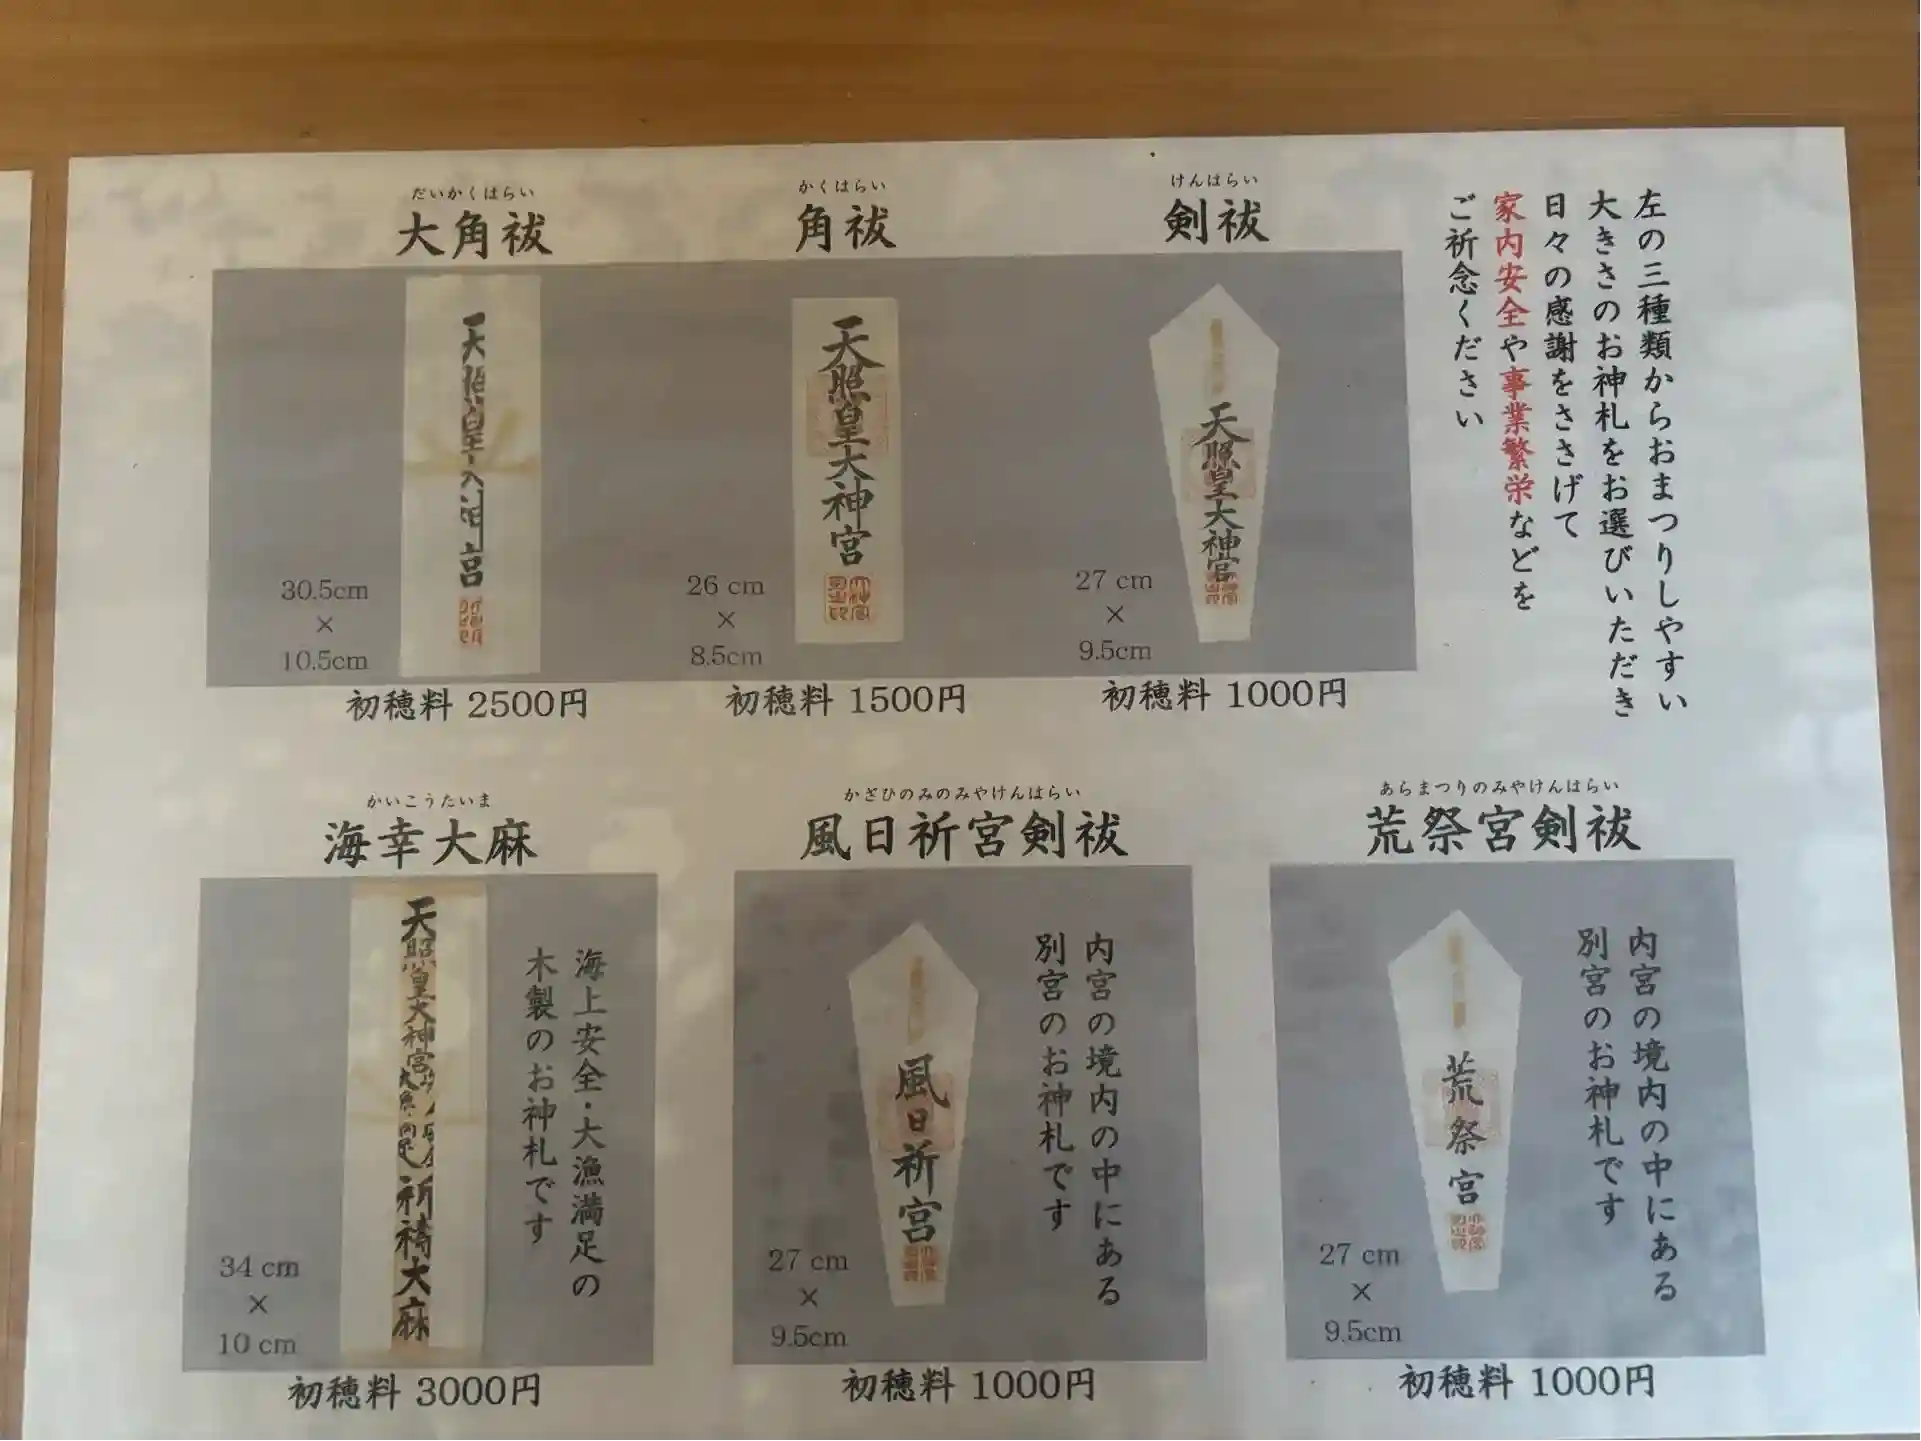 左の三種類からおまつりしやすい
大きさのお神札をお選びいただき
日々の感謝をささげて
家内安全や事業繁栄などを
ご祈念ください
けんはらい
剣祓
天照皇大神宮
27 cm
×
9.5cm
初穂料 1000円
かくはらい
角祓
天照皇大神宮
26 cm
×
8.5cm
初穂料 1500円
だいかくはらい
大角祓
天照皇大神宮
30.5cm
×
10.5cm
初穂料 2500円
あらまつりのみやけんはらい
荒祭宮剣祓
内宮の境内の中にある
別宮のお神札です
荒祭宮
27 cm
×
9.5cm
初穂料 1000円
かざひのみのみやけんはらい
風日祈宮剣祓
内宮の境内の中にある
別宮のお神札です
風日祈宮
27 cm
×
9.5cm
初穂料 1000円
かいこうたいま
海幸大麻
海上安全・大漁満足の
木製のお神札です
天照皇大神宮
祈祷大麻
34 cm
×
10 cm
初穂料 3000円